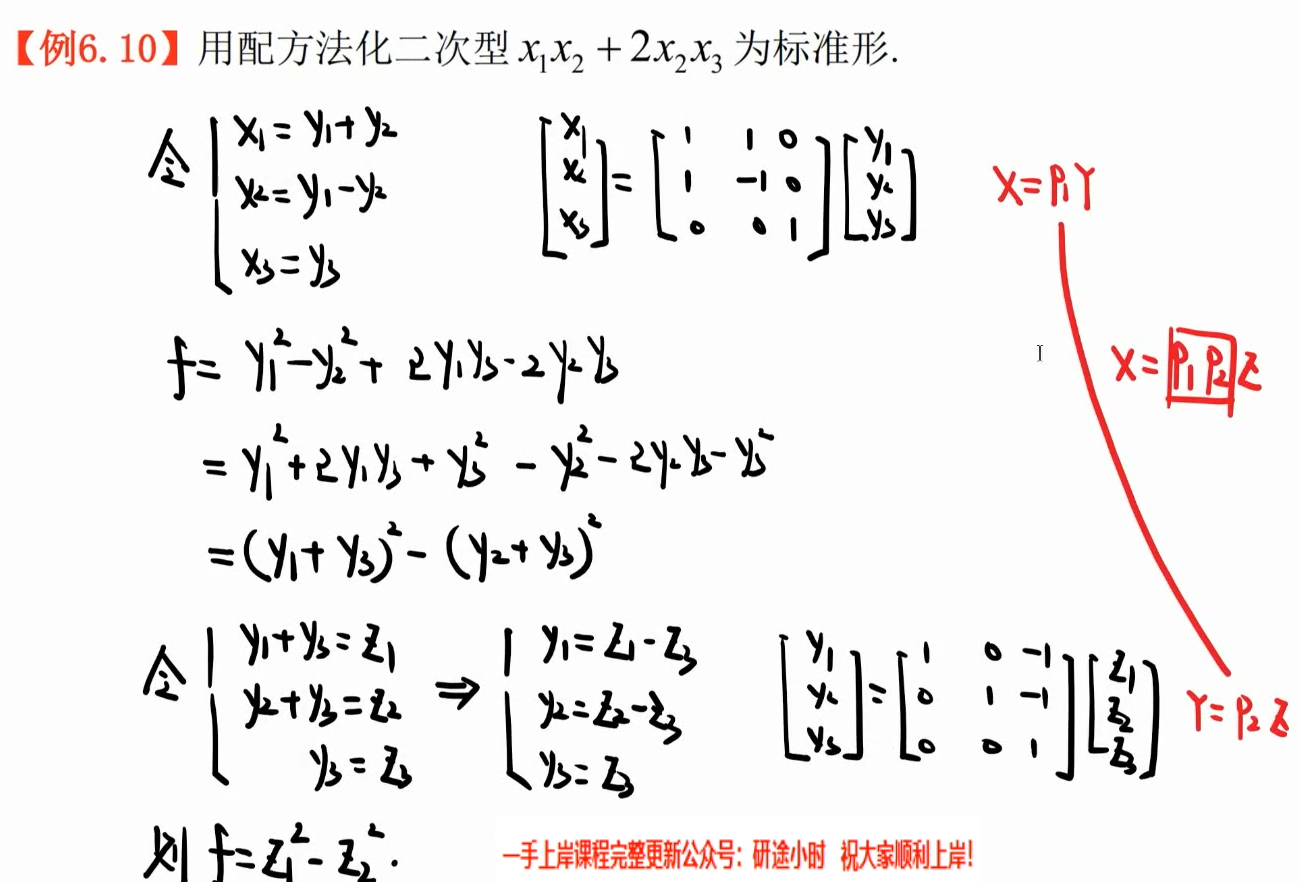 【例6.10】用配方法化二次型 x₁x₂ + 2x₂x₃ 为标准形.
令 { x₁ = y₁ + y₂
x₂ = y₁ - y₂
x₃ = y₃
[x₁ x₂ x₃] = [1 1 0; 1 -1 0; 0 0 1] [y₁ y₂ y₃]
X = P₁Y
f = y₁² - y₂² + 2y₁y₃ - 2y₂y₃
X = P₁P₂Z
= y₁² + 2y₁y₃ + y₃² - y₂² - 2y₂y₃ - y₃²
= (y₁ + y₃)² - (y₂ + y₃)²
令 { y₁ + y₃ = z₁
y₂ + y₃ = z₂
y₃ = z₃
⇒ { y₁ = z₁ - z₃
y₂ = z₂ - z₃
y₃ = z₃
[y₁ y₂ y₃] = [1 0 -1; 0 1 -1; 0 0 1] [z₁ z₂ z₃]
Y = P₂Z
则 f = z₁² - z₂².
一手上岸课程完整更新公众号：研途小时 祝大家顺利上岸！